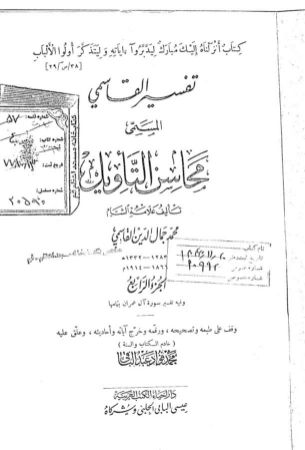 كِتَابٌ أَنْزَلْنَاهُ إِلَيْكَ مُبَارَكٌ لِيَدَّبَّرُوا آيَاتِهِ وَلِيَتَذَكَّرَ أُولُوا الْأَلْبَابِ
[٣٨/ص/٢٩]
تفسير القاسمي
المسمى
محاسن التأويل
تأليف علامة الشام
محمد جمال الدين القاسمي
١٢٨٣ — ١٣٣٢هـ
١٨٦٦ — ١٩١٤م
الجزء الرابع
وفيه تفسير سورة آل عمران بتمامها
وقف على طبعه وتصحيحه، ورقمه وخرج آياته وأحاديثه، وعلق عليه
(خادم الكتاب والسنة)
محمد فؤاد عبد الباقي
دار إحياء الكتب العربية
عيسى البابي الحلبي وشركاه
٥٧
٢٠٥٩٠
نام كتاب